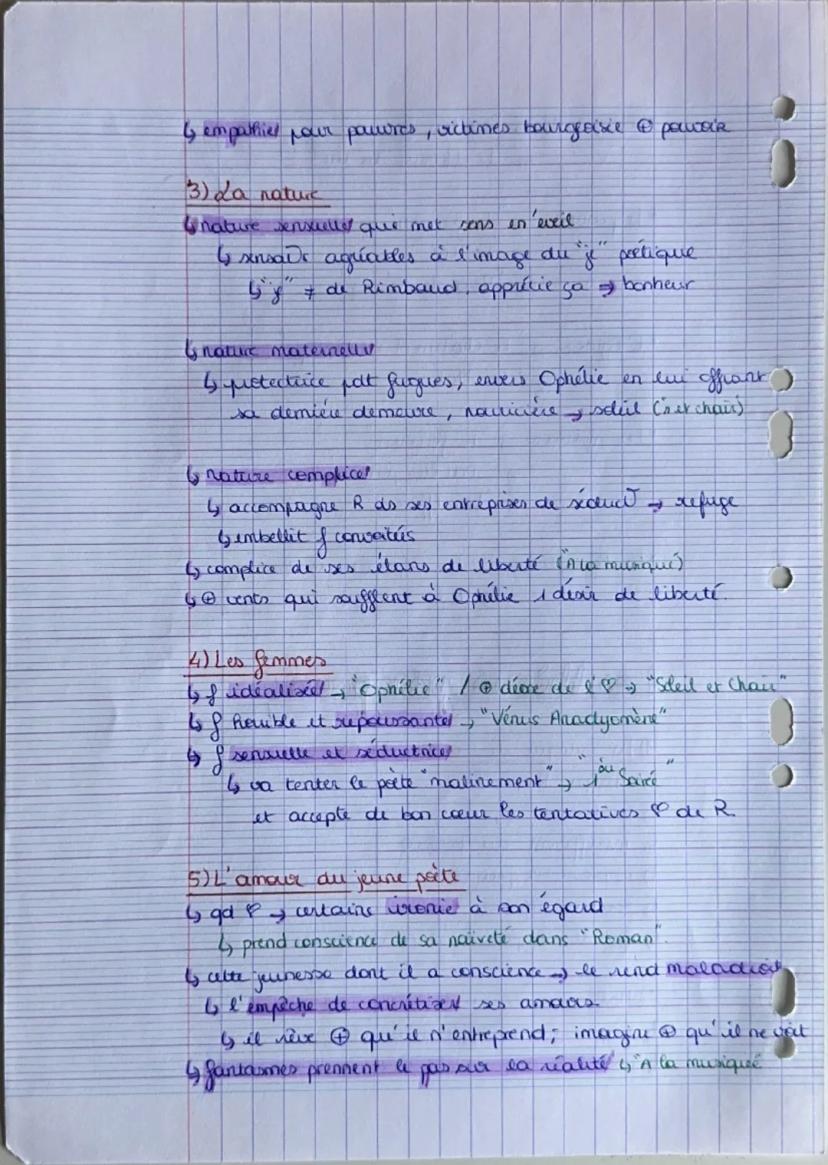 ↳ empathie pour pauvres, victimes bourgeoisie ⊕ pouvoir
3) La nature
↳ nature sensuelle qui met sens en éveil
↳ sensat° agréables à l'image du "je" poétique
↳ "je" ≠ de Rimbaud, apprécie ça ⇒ bonheur
↳ nature maternelle
↳ protectrice pdt fugues, envers Ophélie en lui offrant
sa dernière demeure, nourricière → soleil (s et chair)
↳ nature complice
↳ accompagne R ds ses entreprises de séduct° → refuge
↳ embellit f convoitées
↳ complice de ses élans de liberté (A la musique)
↳ ⊕ vents qui soufflent à Ophélie 1 désir de liberté.
4) Les femmes
↳ f idéalisée → "Ophélie" / ⊕ déesse de l'♡ → "Soleil et Chair"
↳ f horrible et repoussante → "Vénus Anadyomène"
↳ f sensuelle et séductrice
↳ va tenter le poète "malinement" → "1ère Soirée"
et accepte de bon cœur les tentatives ♡ de R.
5) L'amour du jeune poète
↳ qd ♡ → certaine ironie à son égard
↳ prend conscience de sa naïveté dans "Roman".
↳ cette jeunesse dont il a conscience → le rend maladroit
↳ l'empêche de concrétiser ses amours
↳ il rêve ⊕ qu'il n'entreprend; imagine ⊕ qu'il ne voit
↳ fantasmes prennent le pas sur la réalité ↳ "A la musique"